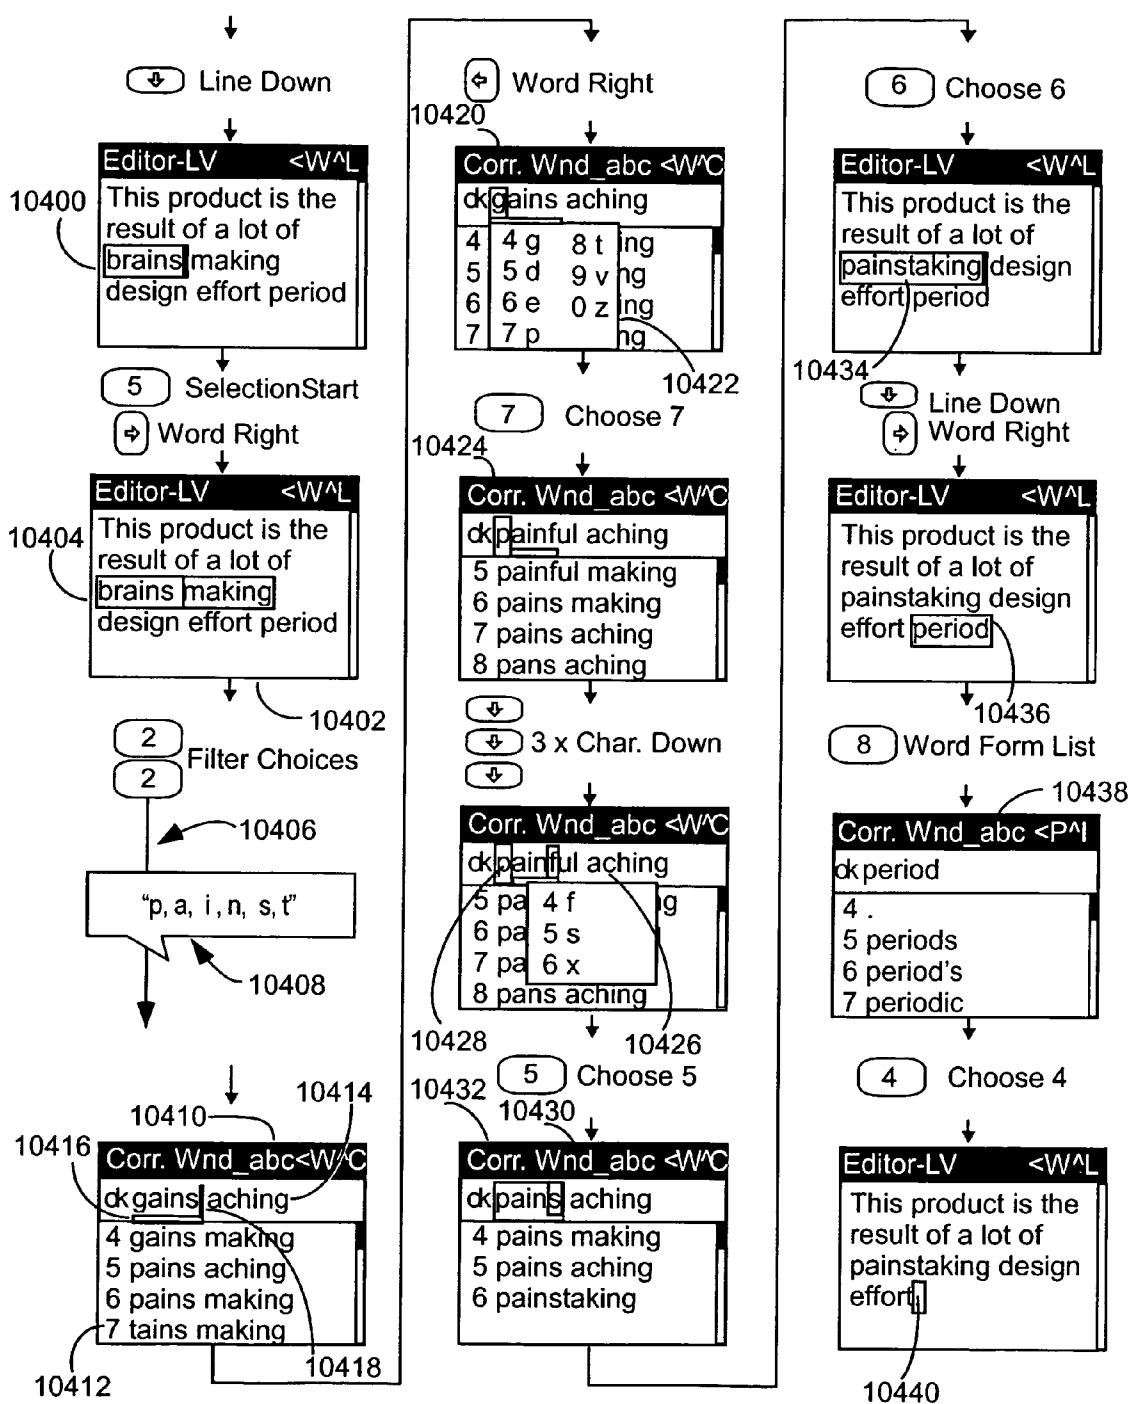 Line Down
Editor-LV <W^L
10400
This product is the
result of a lot of
brains making
design effort period
5 SelectionStart
Word Right
Editor-LV <W^L
10404
This product is the
result of a lot of
brains making
design effort period
10402
2
2
Filter Choices
10406
“p, a, i, n, s, t”
10408
10414
10410
10416
Corr. Wnd_abc<W^C
ok gains aching
4 gains making
5 pains aching
6 pains making
7 tains making
10418
10412
Word Right
10420
Corr. Wnd_abc <W^C
ok gains aching
4 4 g 8 t ing
5 5 d 9 v ng
6 6 e 0 z ing
7 7 p ng
10422
7 Choose 7
10424
Corr. Wnd_abc <W^C
ok painful aching
5 painful making
6 pains making
7 pains aching
8 pans aching
3 x Char. Down
Corr. Wnd_abc <W^C
ok painful aching
5 pa 4 f g
6 pa 5 s
7 pa 6 x
8 pans aching
10428
10426
5 Choose 5
10432
10430
Corr. Wnd_abc <W^C
ok pains aching
4 pains making
5 pains aching
6 painstaking
6 Choose 6
Editor-LV <W^L
This product is the
result of a lot of
painstaking design
effort period
10434
Line Down
Word Right
Editor-LV <W^L
This product is the
result of a lot of
painstaking design
effort period
10436
8 Word Form List
10438
Corr. Wnd_abc <P^I
ok period
4 .
5 periods
6 period's
7 periodic
4 Choose 4
Editor-LV <W^L
This product is the
result of a lot of
painstaking design
effort.
10440